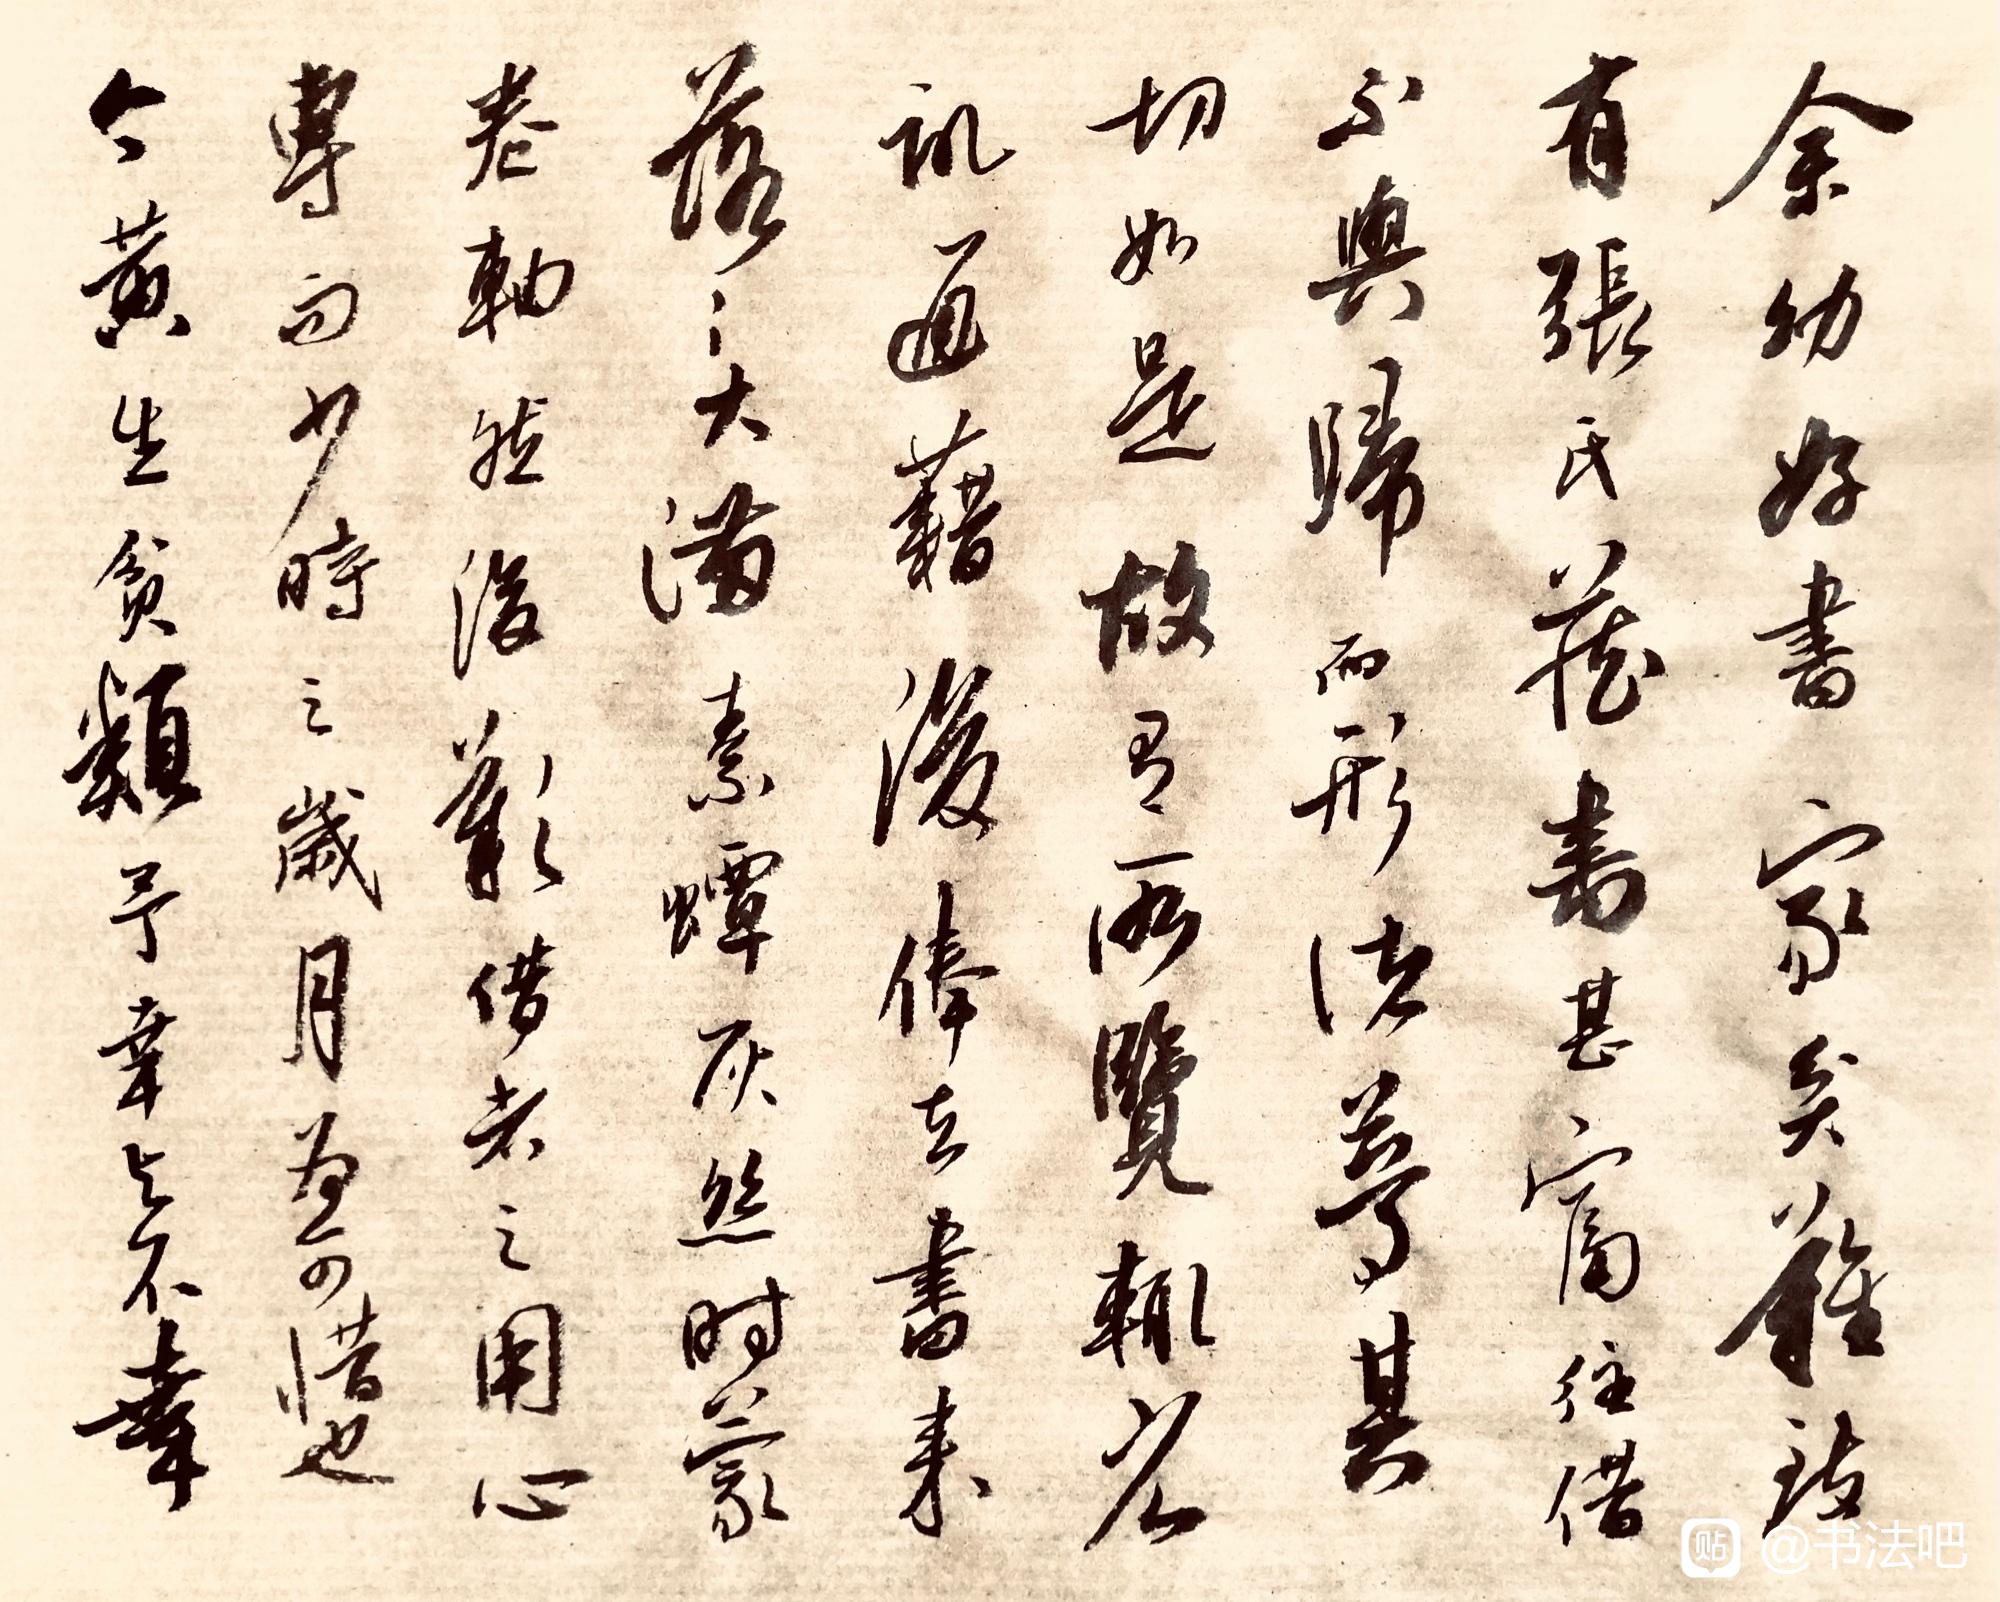 余幼好書家貧難致
有張氏藏書甚富往借
不與歸而形諸夢其
切如是故有所覽輒省
記通藉後俸去書來
落々大滿素蟫灰絲时蒙
卷軸然後歎借者之用心
專而少時之歲月為可惜也
今黃生貧類予幸与不幸
貼 @书法吧